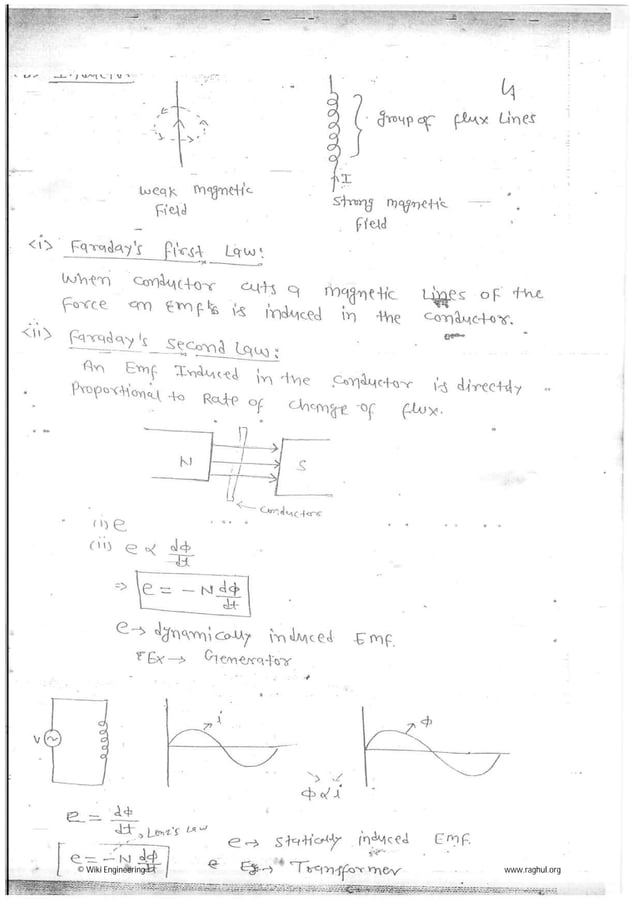 Inductor
group of flux Lines
I
weak magnetic
Field
strong magnetic
field
<i> Faraday's first Law:
When conductor cuts a magnetic Lines of the
Force an Emf is induced in the conductor.
<ii> Faraday's second Law:
An Emf Induced in the conductor is directly
Proportional to Rate of change of flux.
N
S
conductor
(i) e
(ii) e ∝ dφ/dt
⇒ e = -N dφ/dt
e → dynamically induced Emf.
Ex → Generator
V
i
φ
φ ∝ i
e = dφ/dt
Lenz's Law
e → statically induced Emf.
e = -N dφ/dt
e Eg → Transformer
© Wiki Engineering
www.raghul.org